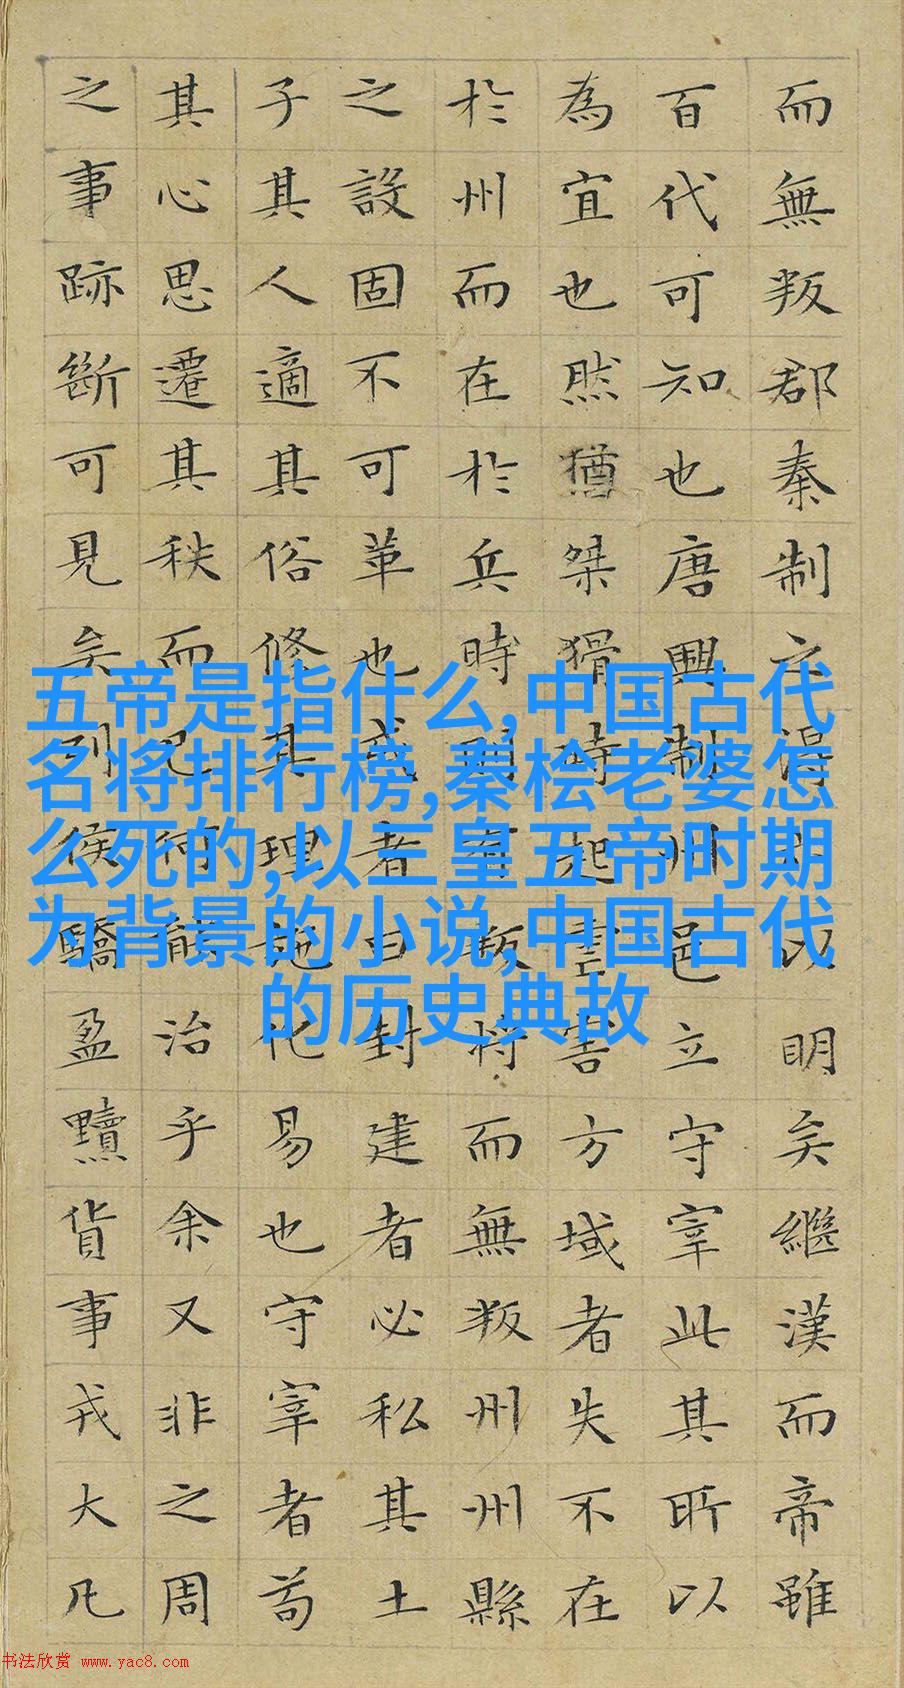 而無叛郡秦制之得以明矣繼漢而帝雖
百代可知也唐興制州邑立守宰此其所以
為宜也然猶桀猾時起虐害方域者失不在
於州而在於兵時則有叛將而無叛州州縣
之設固不可革也或者曰封建者必私其土
子其人適其俗脩其理施化易也守宰者苟
其心思遷其秩而已何能治乎余又非之周
之事跡斷可見矣列侯驕盈黷貨事戎大凡
五帝是指什么,中国古代
名将排行榜,秦桧老婆怎
么死的,以三皇五帝时期
为背景的小说,中国古代
的历史典故
书法欣赏 www.yac8.com